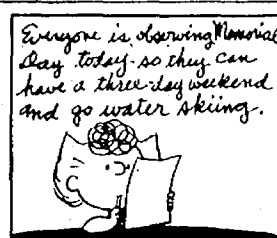 Everyone is observing Memorial
Day today so they can
have a three-day weekend
and go water skiing.